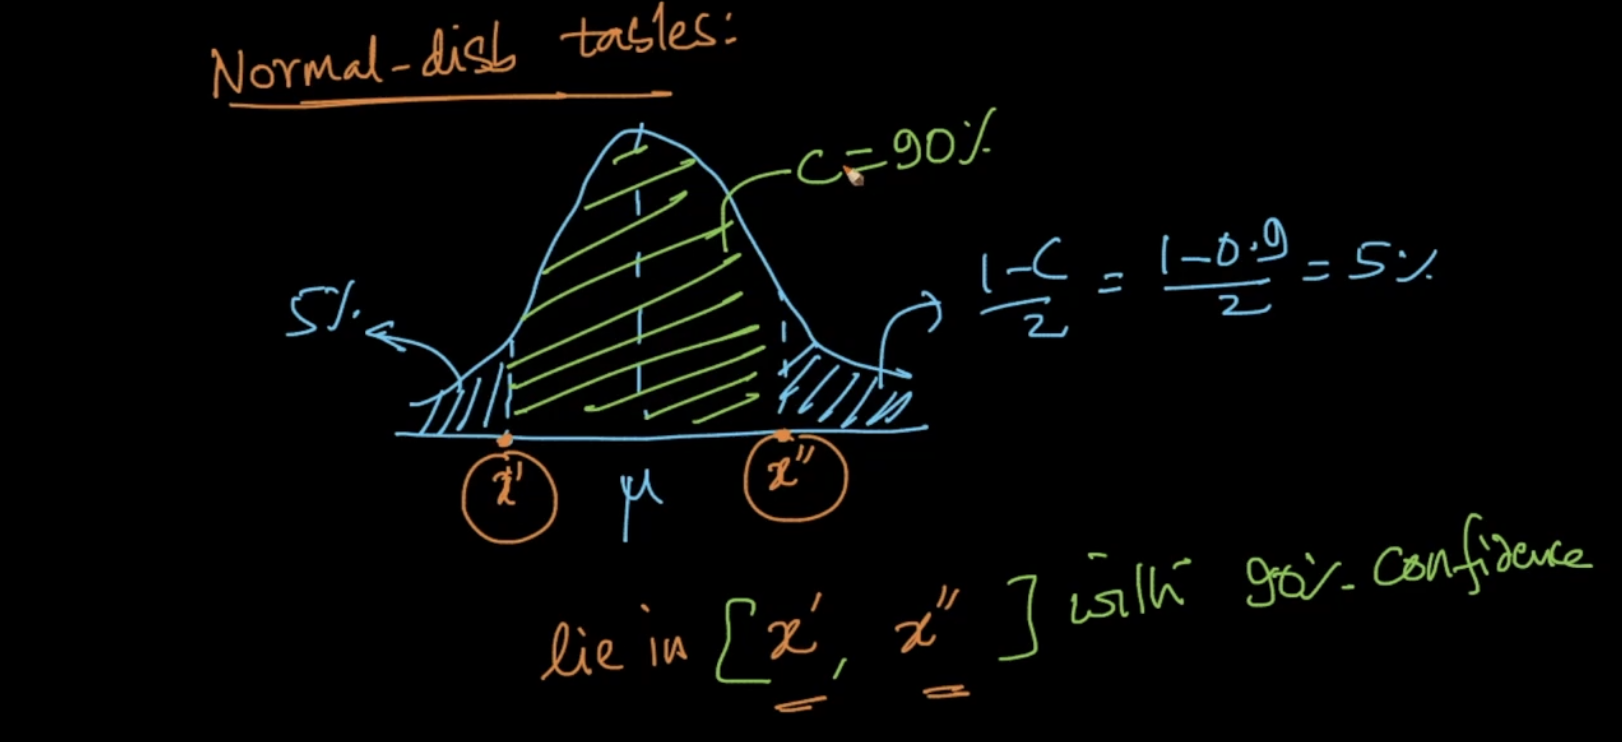 Normal-dist tables:
C=90%
5%
1-C/2 = 1-0.9/2 = 5%
x' μ x"
lie in [x', x"] with 90% confidence